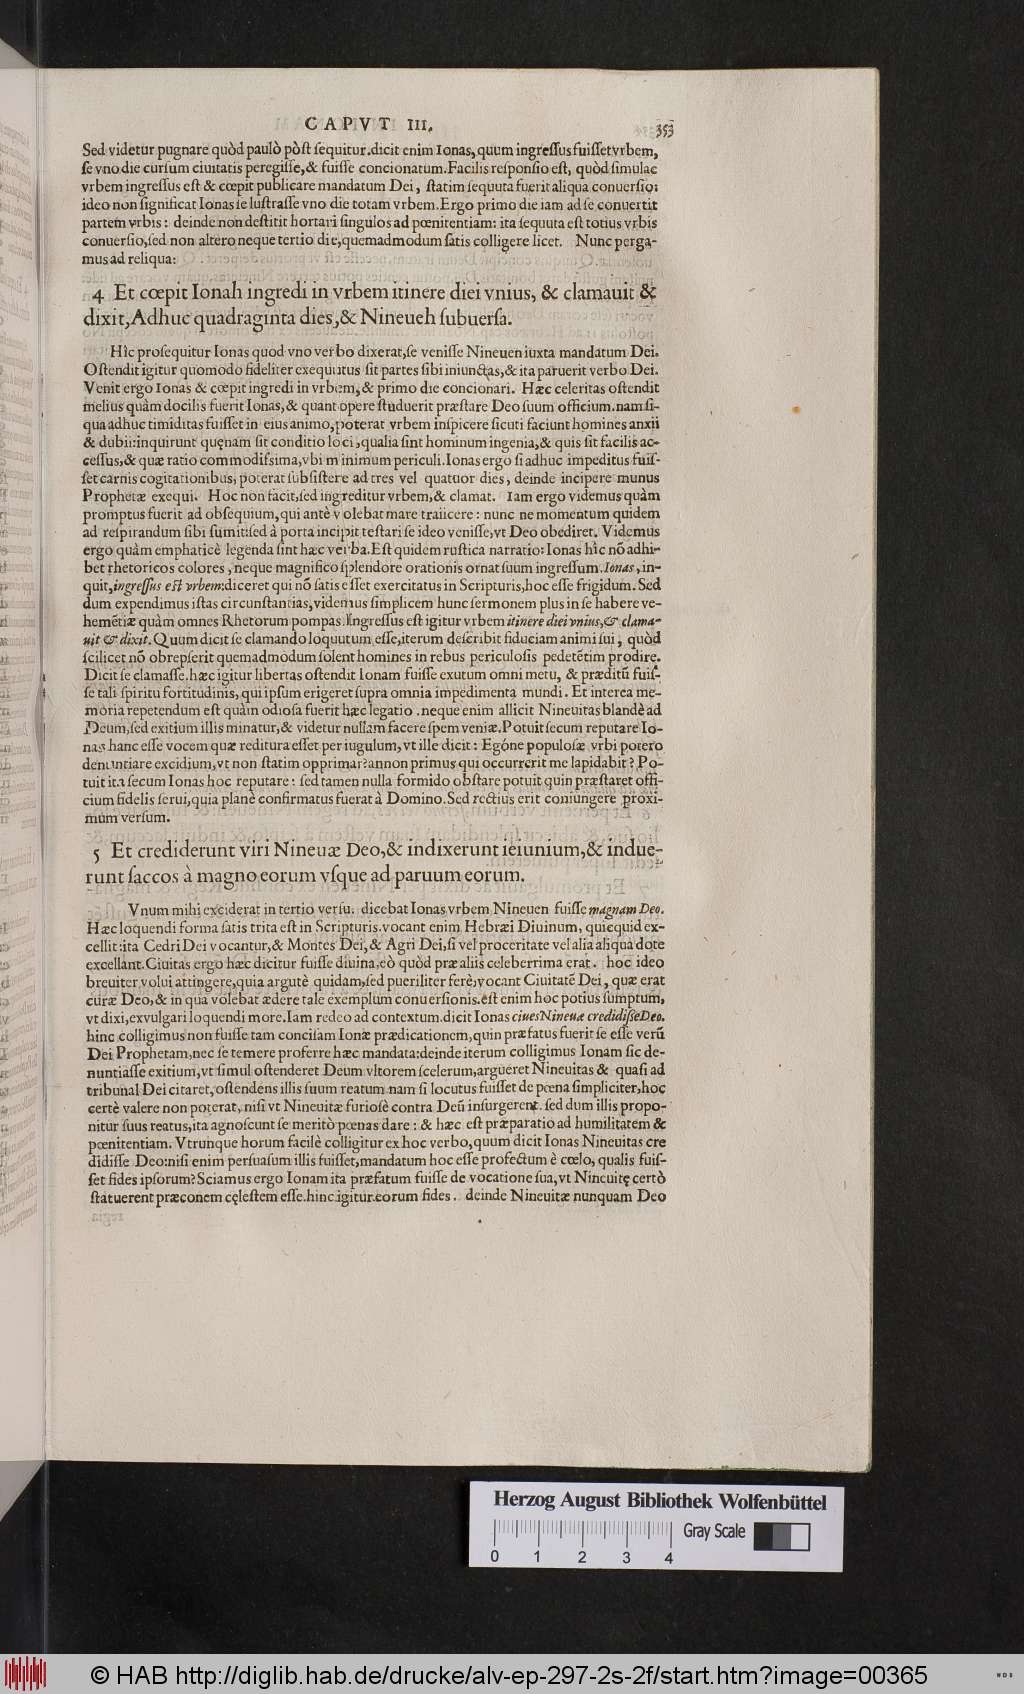 CAPVT III.
353
Sed videtur pugnare quòd paulò pòst sequitur. dicit enim Ionas, quum ingressus fuisset vrbem,
se vno die cursum ciuitatis peregisse, & fuisse concionatum. Facilis responsio est, quòd simulac
vrbem ingressus est & cœpit publicare mandatum Dei, statim sequuta fuerit aliqua conuersio:
ideo non significat Ionas se lustrasse vno die totam vrbem. Ergo primo die iam ad se conuertit
partem vrbis: deinde non destitit hortari singulos ad pœnitentiam: ita sequuta est totius vrbis
conuersio, sed non altero neque tertio die, quemadmodum satis colligere licet. Nunc perga-
mus ad reliqua:
4 Et cœpit Ionah ingredi in vrbem itinere diei vnius, & clamauit &
dixit, Adhuc quadraginta dies, & Nineueh subuersa.
Hîc prosequitur Ionas quod vno verbo dixerat, se venisse Nineuen iuxta mandatum Dei.
Ostendit igitur quomodo fideliter exequutus sit partes sibi iniunctas, & ita paruerit verbo Dei.
Venit ergo Ionas & cœpit ingredi in vrbem, & primo die concionari. Hæc celeritas ostendit
melius quàm docilis fuerit Ionas, & quantopere studuerit præstare Deo suum officium. nam si-
qua adhuc timiditas fuisset in eius animo, poterat vrbem inspicere sicuti faciunt homines anxii
& dubii: inquirunt quęnam sit conditio loci, qualia sint hominum ingenia, & quis sit facilis ac-
cessus, & quæ ratio commodissima, vbi minimum periculi. Ionas ergo si adhuc impeditus fuis-
set carnis cogitationibus, poterat subsistere ad tres vel quatuor dies, deinde incipere munus
Prophetæ exequi. Hoc non facit, sed ingreditur vrbem, & clamat. Iam ergo videmus quàm
promptus fuerit ad obsequium, qui antè volebat mare traiicere: nunc ne momentum quidem
ad respirandum sibi sumit: sed à porta incipit testari se ideo venisse, vt Deo obediret. Videmus
ergo quàm emphaticè legenda sint hæc verba. Est quidem rustica narratio: Ionas hîc nō adhi-
bet rhetoricos colores, neque magnifico splendore orationis ornat suum ingressum. Ionas, in-
quit, ingressus est vrbem: diceret qui nō satis esset exercitatus in Scripturis, hoc esse frigidum. Sed
dum expendimus istas circunstantias, videmus simplicem hunc sermonem plus in se habere ve-
hemētiæ quàm omnes Rhetorum pompas. Ingressus est igitur vrbem itinere diei vnius, & clama-
uit & dixit. Quum dicit se clamando loquutum esse, iterum describit fiduciam animi sui, quòd
scilicet nō obrepserit quemadmodum solent homines in rebus periculosis pedetētim prodire.
Dicit se clamasse. hæc igitur libertas ostendit Ionam fuisse exutum omni metu, & præditū fuis-
se tali spiritu fortitudinis, qui ipsum erigeret supra omnia impedimenta mundi. Et interea me-
moria repetendum est quàm odiosa fuerit hæc legatio. neque enim allicit Nineuitas blandè ad
Deum, sed exitium illis minatur, & videtur nullam facere spem veniæ. Potuit secum reputare Io-
nas hanc esse vocem quæ reditura esset per iugulum, vt ille dicit: Egóne populosæ vrbi potero
denuntiare excidium, vt non statim opprimar? annon primus qui occurrerit me lapidabit? Po-
tuit ita secum Ionas hoc reputare: sed tamen nulla formido obstare potuit quin præstaret offi-
cium fidelis serui, quia planè confirmatus fuerat à Domino. Sed rectius erit coniungere proxi-
mum versum.
5 Et crediderunt viri Nineuæ Deo, & indixerunt ieiunium, & indue-
runt saccos à magno eorum vsque ad paruum eorum.
Vnum mihi exciderat in tertio versu. dicebat Ionas vrbem Nineuen fuisse magnam Deo.
Hæc loquendi forma satis trita est in Scripturis. vocant enim Hebræi Diuinum, quicquid ex-
cellit: ita Cedri Dei vocantur, & Montes Dei, & Agri Dei, si vel proceritate vel alia aliqua dote
excellant. Ciuitas ergo hæc dicitur fuisse diuina, eò quòd præ aliis celeberrima erat. hoc ideo
breuiter volui attingere, quia argutè quidam, sed pueriliter ferè, vocant Ciuitatē Dei, quæ erat
curæ Deo, & in qua volebat ædere tale exemplum conuersionis. est enim hoc potius sumptum,
vt dixi, ex vulgari loquendi more. Iam redeo ad contextum. dicit Ionas ciues Nineuæ credidisse Deo.
hinc colligimus non fuisse tam concisam Ionæ prædicationem, quin præfatus fuerit se esse verū
Dei Prophetam, nec se temere proferre hæc mandata: deinde iterum colligimus Ionam sic de-
nuntiasse exitium, vt simul ostenderet Deum vltorem scelerum, argueret Nineuitas & quasi ad
tribunal Dei citaret, ostendens illis suum reatum. nam si locutus fuisset de pœna simpliciter, hoc
certè valere non poterat, nisi vt Nineuitæ furiosè contra Deū insurgerent. sed dum illis propo-
nitur suus reatus, ita agnoscunt se meritò pœnas dare: & hæc est præparatio ad humilitatem &
pœnitentiam. Vtrunque horum facilè colligitur ex hoc verbo, quum dicit Ionas Nineuitas cre
didisse Deo: nisi enim persuasum illis fuisset, mandatum hoc esse profectum è cœlo, qualis fuis-
set fides ipsorum? Sciamus ergo Ionam ita præfatum fuisse de vocatione sua, vt Nineuitę certò
statuerent præconem cęlestem esse. hinc igitur eorum fides. deinde Nineuitæ nunquam Deo
Herzog August Bibliothek Wolfenbüttel
Gray Scale
0 1 2 3 4
© HAB http://diglib.hab.de/drucke/alv-ep-297-2s-2f/start.htm?image=00365